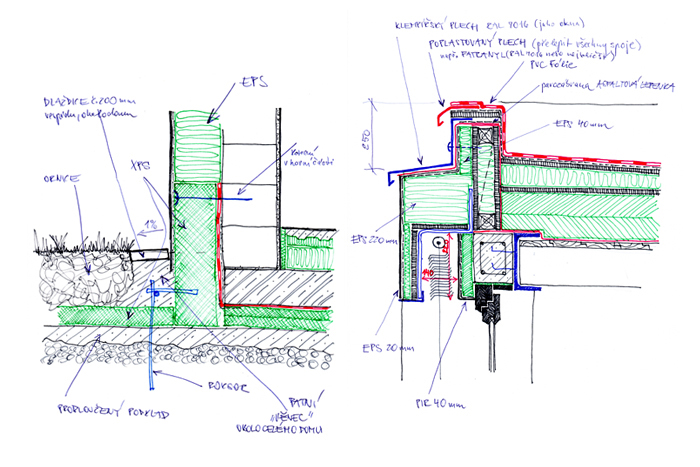 EPS
DLAŽDICE š. 200 mm
XPS
ORNICE
1%
kotvení
v horní části
ROXOR
PATNÍ
„VĚNEC“
OKOLO CELÉHO DOMU
PRODLOUŽENÝ PODKLAD
KLEMPÍŘSKÝ PLECH RAL 7016 (jako okna)
POPLASTOVANÝ PLECH (přelepit všechny spoje)
např. FATRANYL (RAL 7016 nebo nejbližší)
PVC FÓLIE
ASFALTOVÁ LEPENKA
250
EPS 40 mm
EPS 220 mm
140
EPS 20 mm
PIR 40 mm